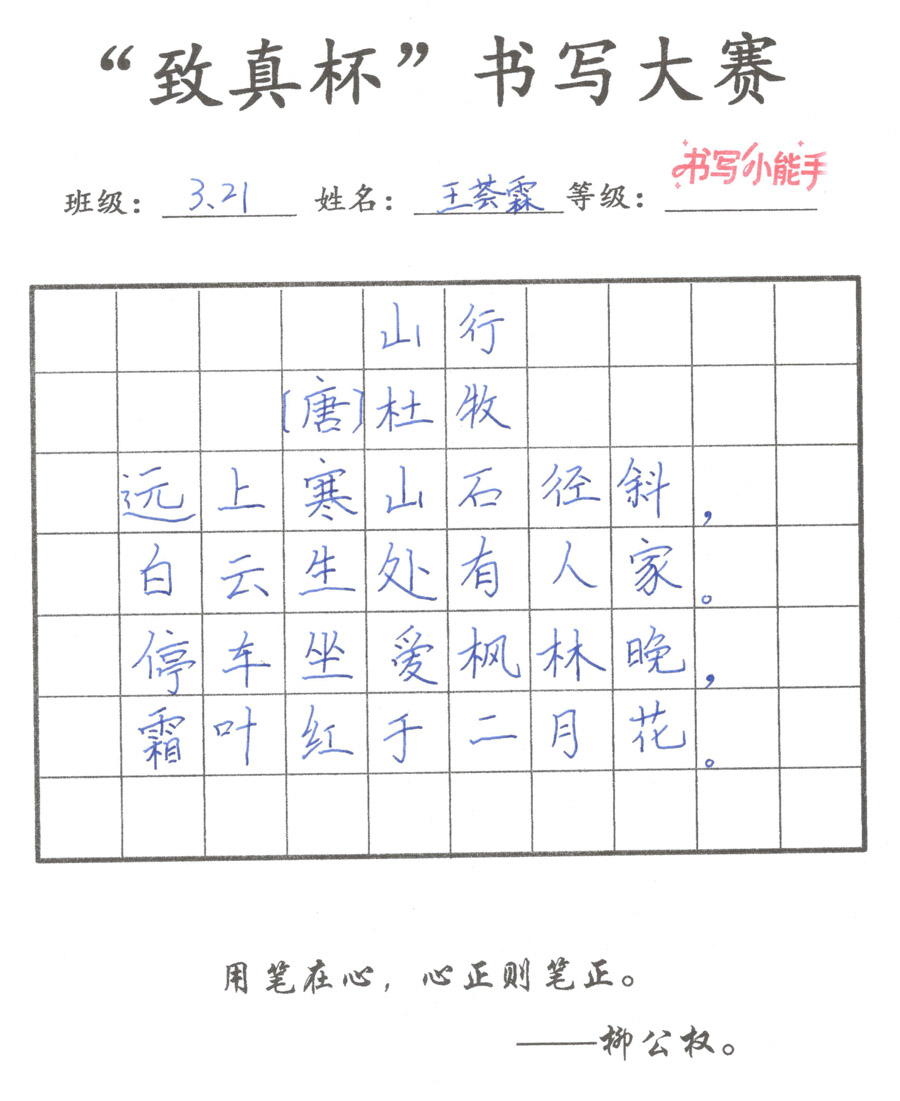 “致真杯”书写大赛
班级：3.21 姓名：王荟霖 等级：书写小能手
山行
［唐］杜牧
远上寒山石径斜，
白云生处有人家。
停车坐爱枫林晚，
霜叶红于二月花。
用笔在心，心正则笔正。
——柳公权。